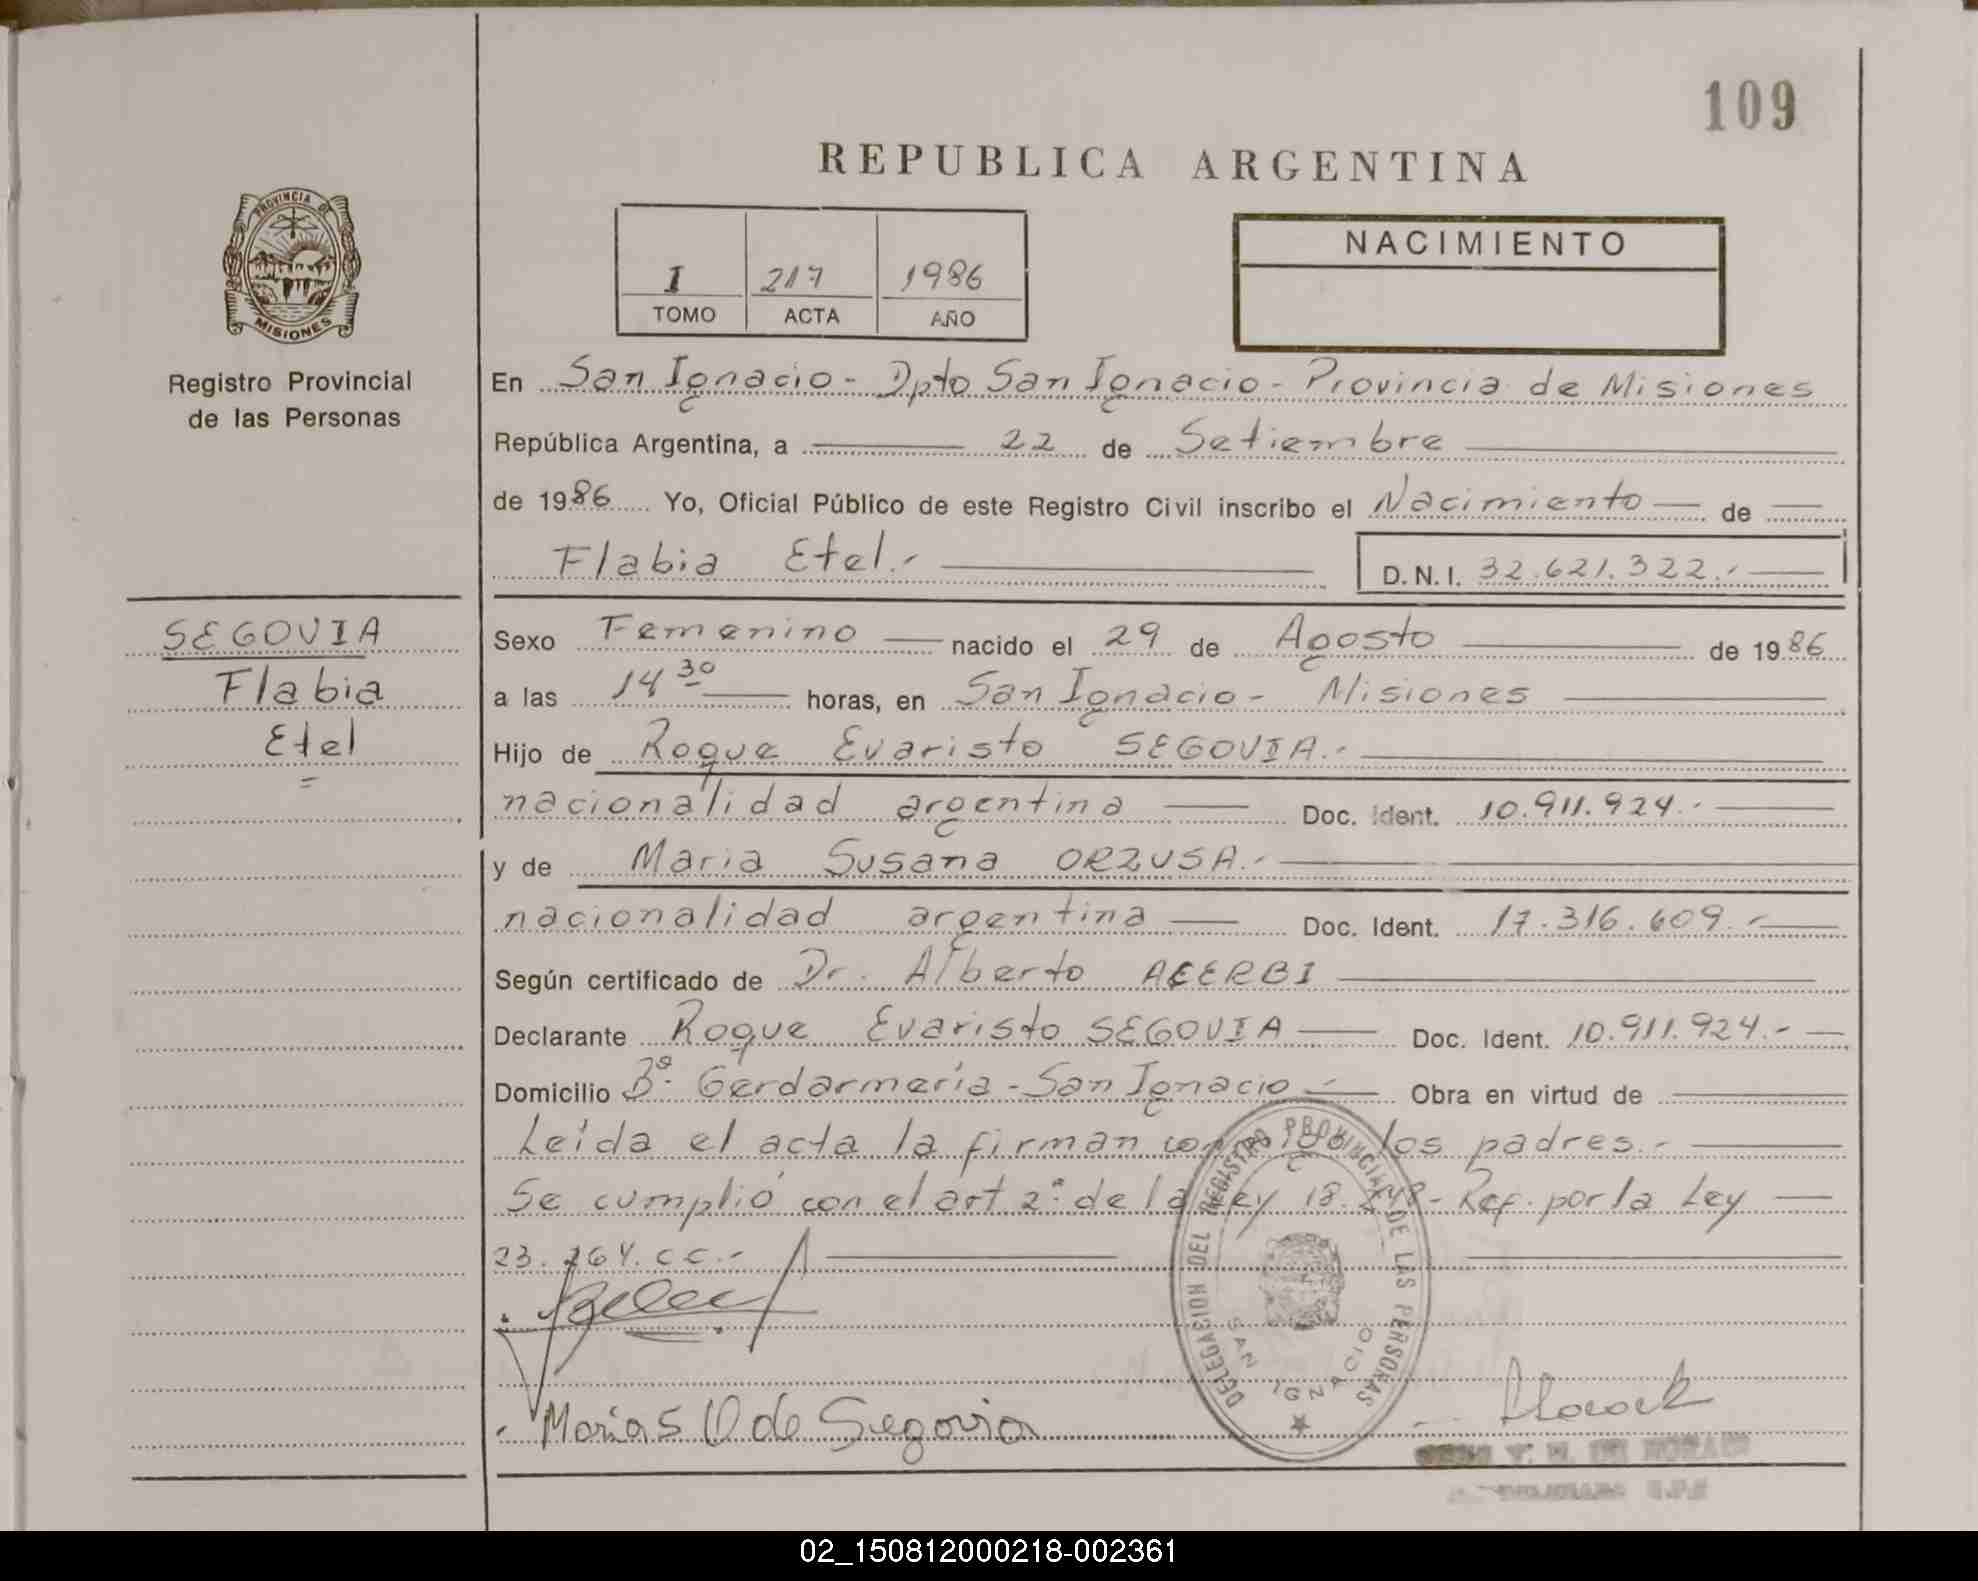 109
REPUBLICA ARGENTINA
PROVINCIA DE
MISIONES
Registro Provincial
de las Personas
I 217 1986
TOMO ACTA AÑO
NACIMIENTO
En San Ignacio - Dpto San Ignacio - Provincia de Misiones
República Argentina, a 22 de Setiembre
de 1986 Yo, Oficial Público de este Registro Civil inscribo el Nacimiento de
Flabia Etel.-
D.N.I. 32.621.322.-
SEGOVIA
Flabia
Etel
Sexo Femenino nacido el 29 de Agosto de 1986
a las 14 30 horas, en San Ignacio - Misiones
Hijo de Roque Evaristo SEGOVIA.-
nacionalidad argentina Doc. Ident. 10.911.924.-
y de Maria Susana ORZUSA.-
nacionalidad argentina Doc. Ident. 17.316.609.-
Según certificado de Dr. Alberto ACERBI
Declarante Roque Evaristo SEGOVIA Doc. Ident. 10.911.924.-
Domicilio Bº. Gerdarmería - San Ignacio - Obra en virtud de
Leída el acta la firman conmigo los padres.-
Se cumplió con el art 2º de la Ley 18. - Ref. por la Ley
23.264. C C.-
DELEGACION DEL REGISTRO PROVINCIAL DE LAS PERSONAS
SAN IGNACIO
Maria S O de Segovia
02_150812000218-002361